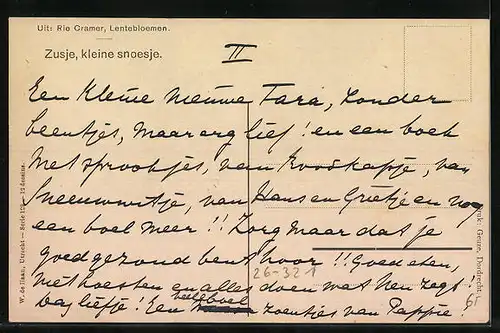 Uit: Rie Cramer, Lentebloemen.
Zusje, kleine snoesje.
II
Een kleine nieuwe Tara, zonder
beentjes, maar erg lief! en een boek
met sprookjes, van Roodkapje, van
Sneeuwwitje, van Hans en Grietje en nog
een boel meer!! Zorg maar dat je
goed gezond bent hoor!! Goed eten,
niet hoesten en alles doen wat men zegt!
Dag liefje! Een heleboel zoentjes van Pappie!
26-3-21
W. de Haan, Utrecht — Serie
12 dessins.
Druk: Geuze, Dordrecht